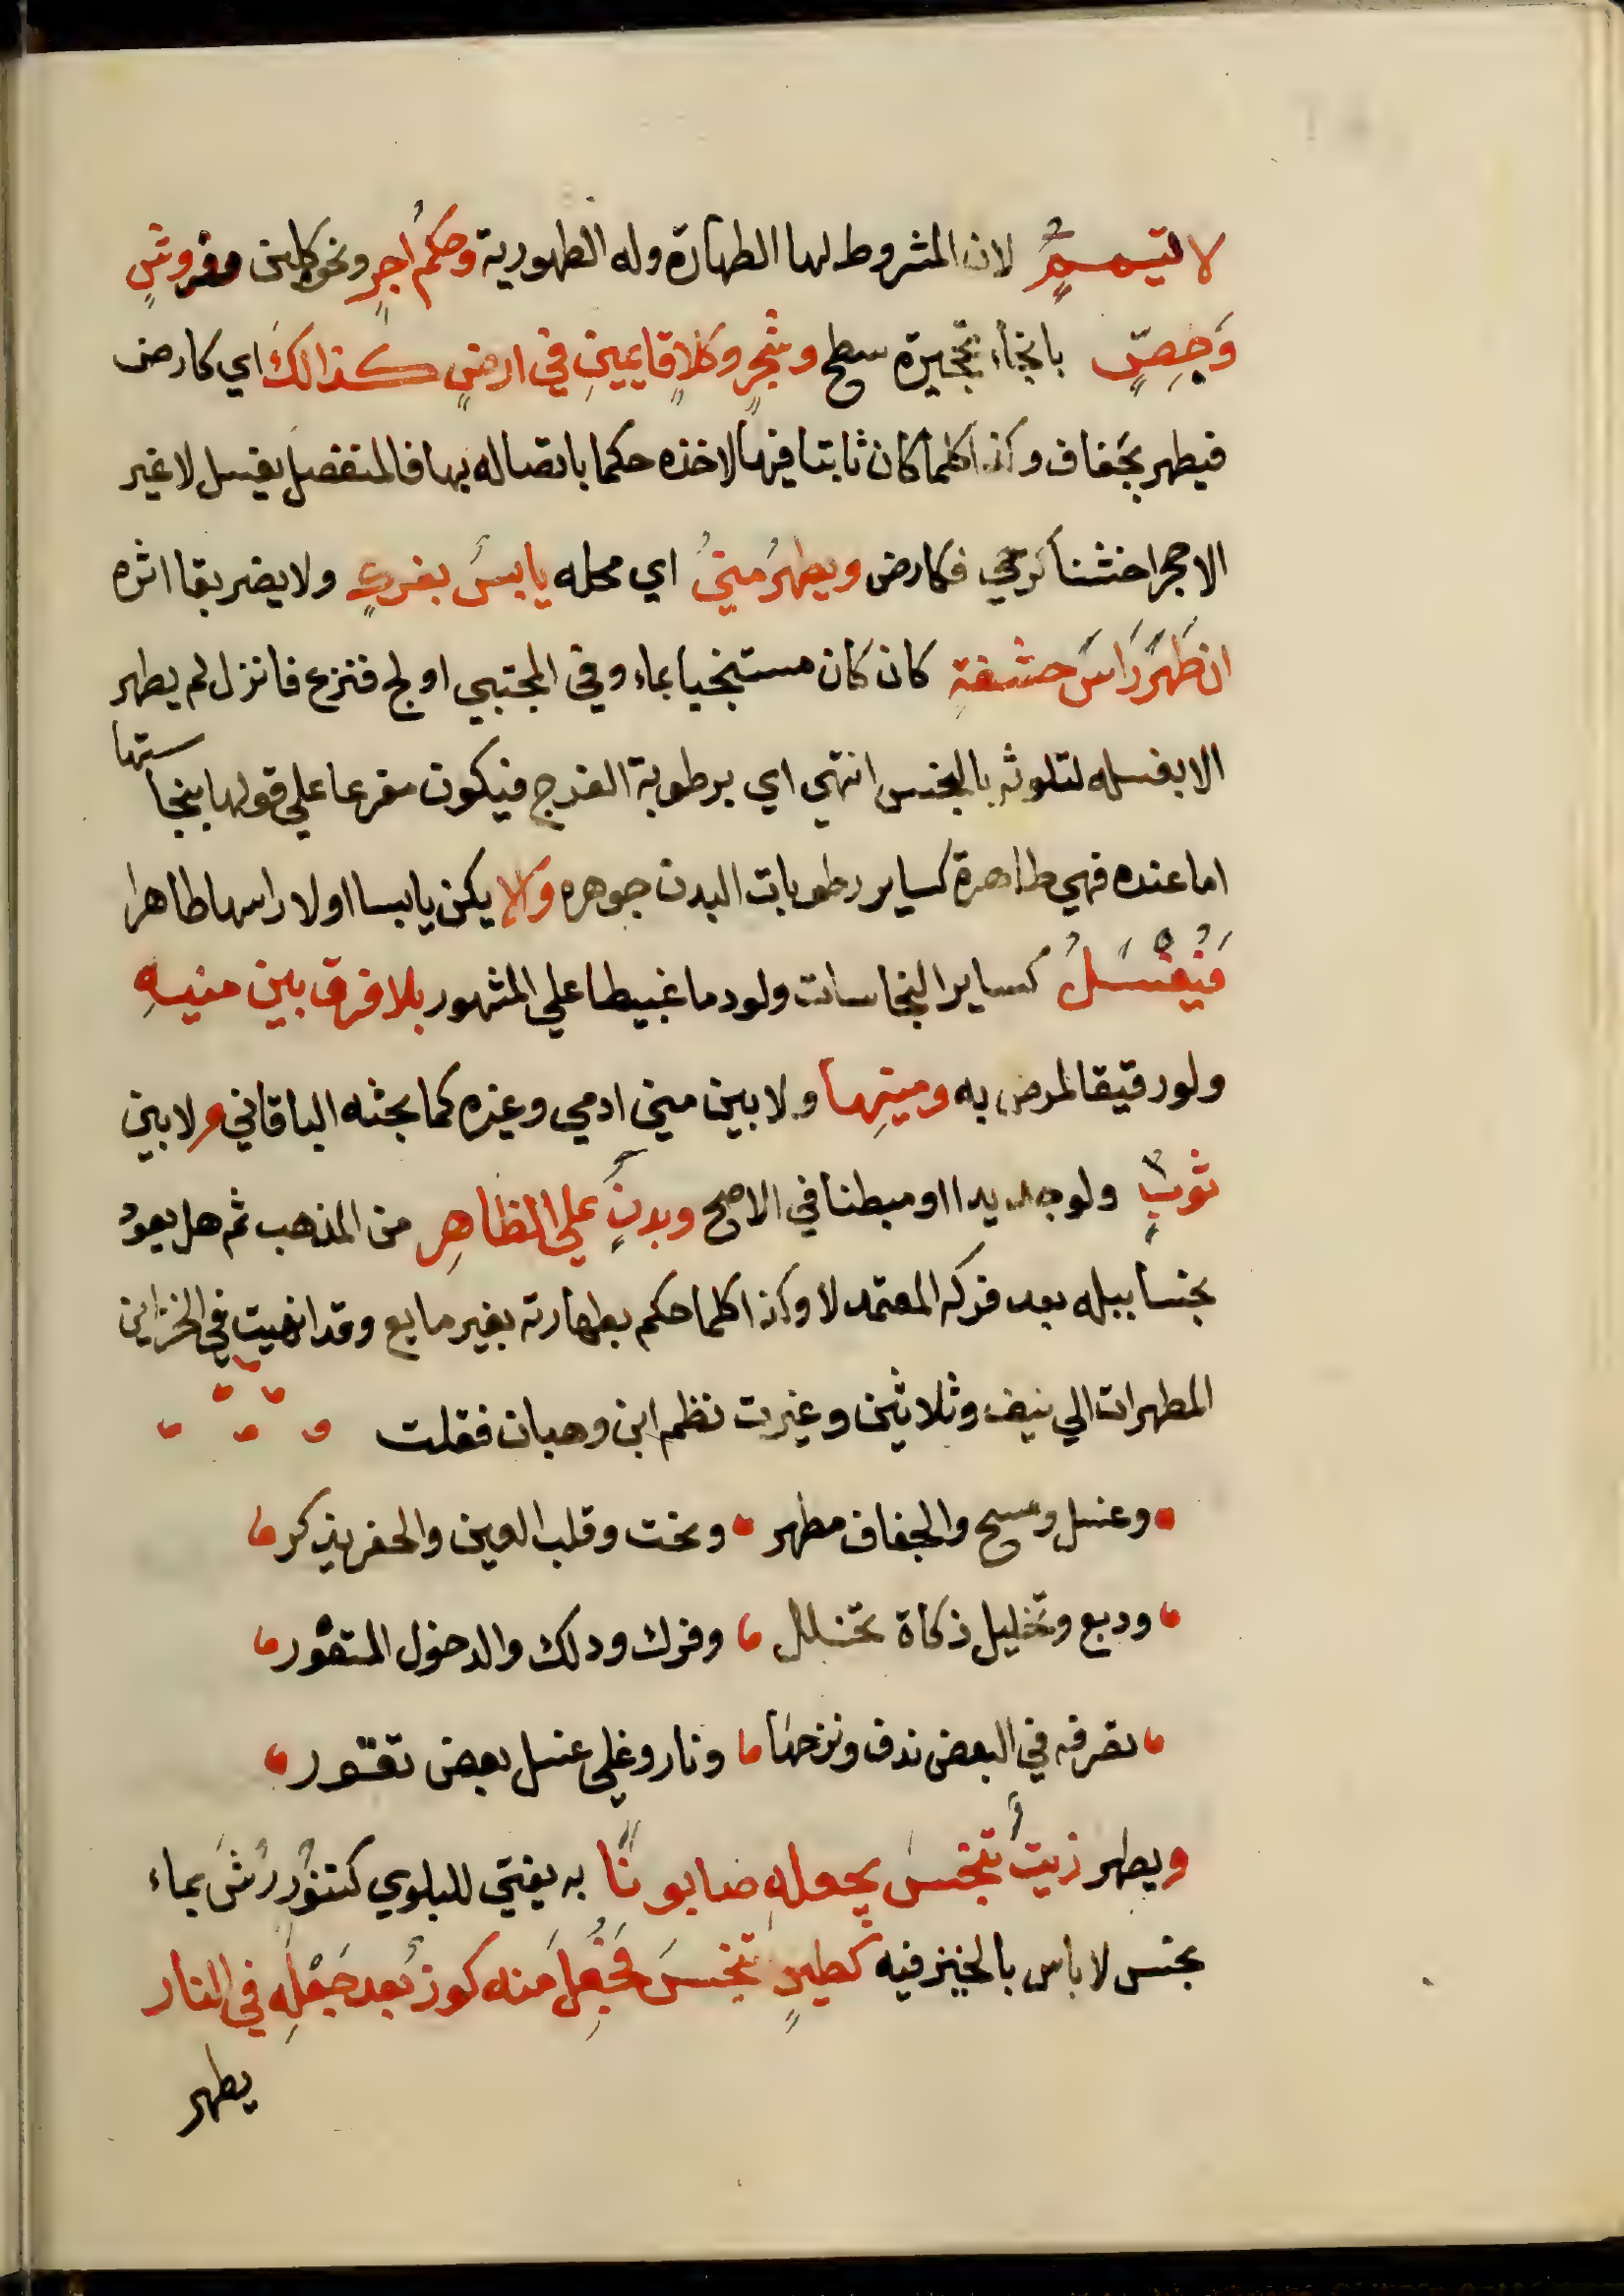 لا تيمم لان المشروط لها الطهارة وله الطهورية وحكم اجر ونحوه كلبن مفروش
وخص بالخاء تحجيرة سطح وشجر وكلا قايمين في ارض كذالك اي كارض
فيطهر بجفاف وكذا كلما كان ثابتا فيها لاخذه حكمها باتصاله بها فالمنفصل يغسل لا غير
الا حجرا خشنا كرحي فكارض ويطهر مني اي محله يابس بفرك ولا يضر بقا اثره
ان طهر راس حشفة كان كان مستنجيا بماء وفي المجتبي اولج فنزع فانزل لم يطهر
الا بغسله لتلوثه بالنجس انتهي اي برطوبة الفرج فيكون مفرعا علي قولها بنجاستها
اما عنده فهي طاهرة كساير رطوبات البدن جوهره والا يكن يابسا اولا راسها طاهرا
فيغسل كساير النجاسات ولو دما غبيطا علي المشهور بلا فرق بين منيه
ولو رقيقا لمرض به ومنيها ولا بين مني ادمي وغيره كما بحثه الباقاني ولا بين
ثوب ولو جديدا او مبطنا في الاصح وبدن علي الظاهر من المذهب ثم هل يعود
نجسا ببله بعد فركه المعتمد لا وكذا كلما حكم بطهارته بغير مايع وقد انهيت في الخزاين
المطهرات الي نيف وثلاثين وغيرت نظم ابن وهبان فقلت
وغسل ومسح والجفاف مطهر ونحت وقلب العين والحفر يذكر
ودبع وتخليل ذكاة تخلل وفرك ودلك والدخول المتغور
تصرفه في البعض ندف ونزحها ونار وغلي غسل بعض تقور
ويطهر زيت تنجس بجعله صابونا به يفتي للبلوي كتنور رش بماء
نجس لا باس بالخبز فيه كطين تنجس فجعل منه كوز بعد جعله في النار
يطهر